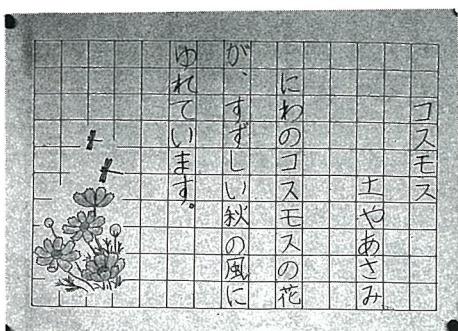 コスモス
土やあさみ
にわのコスモスの花
が、すずしい秋の風に
ゆれています。